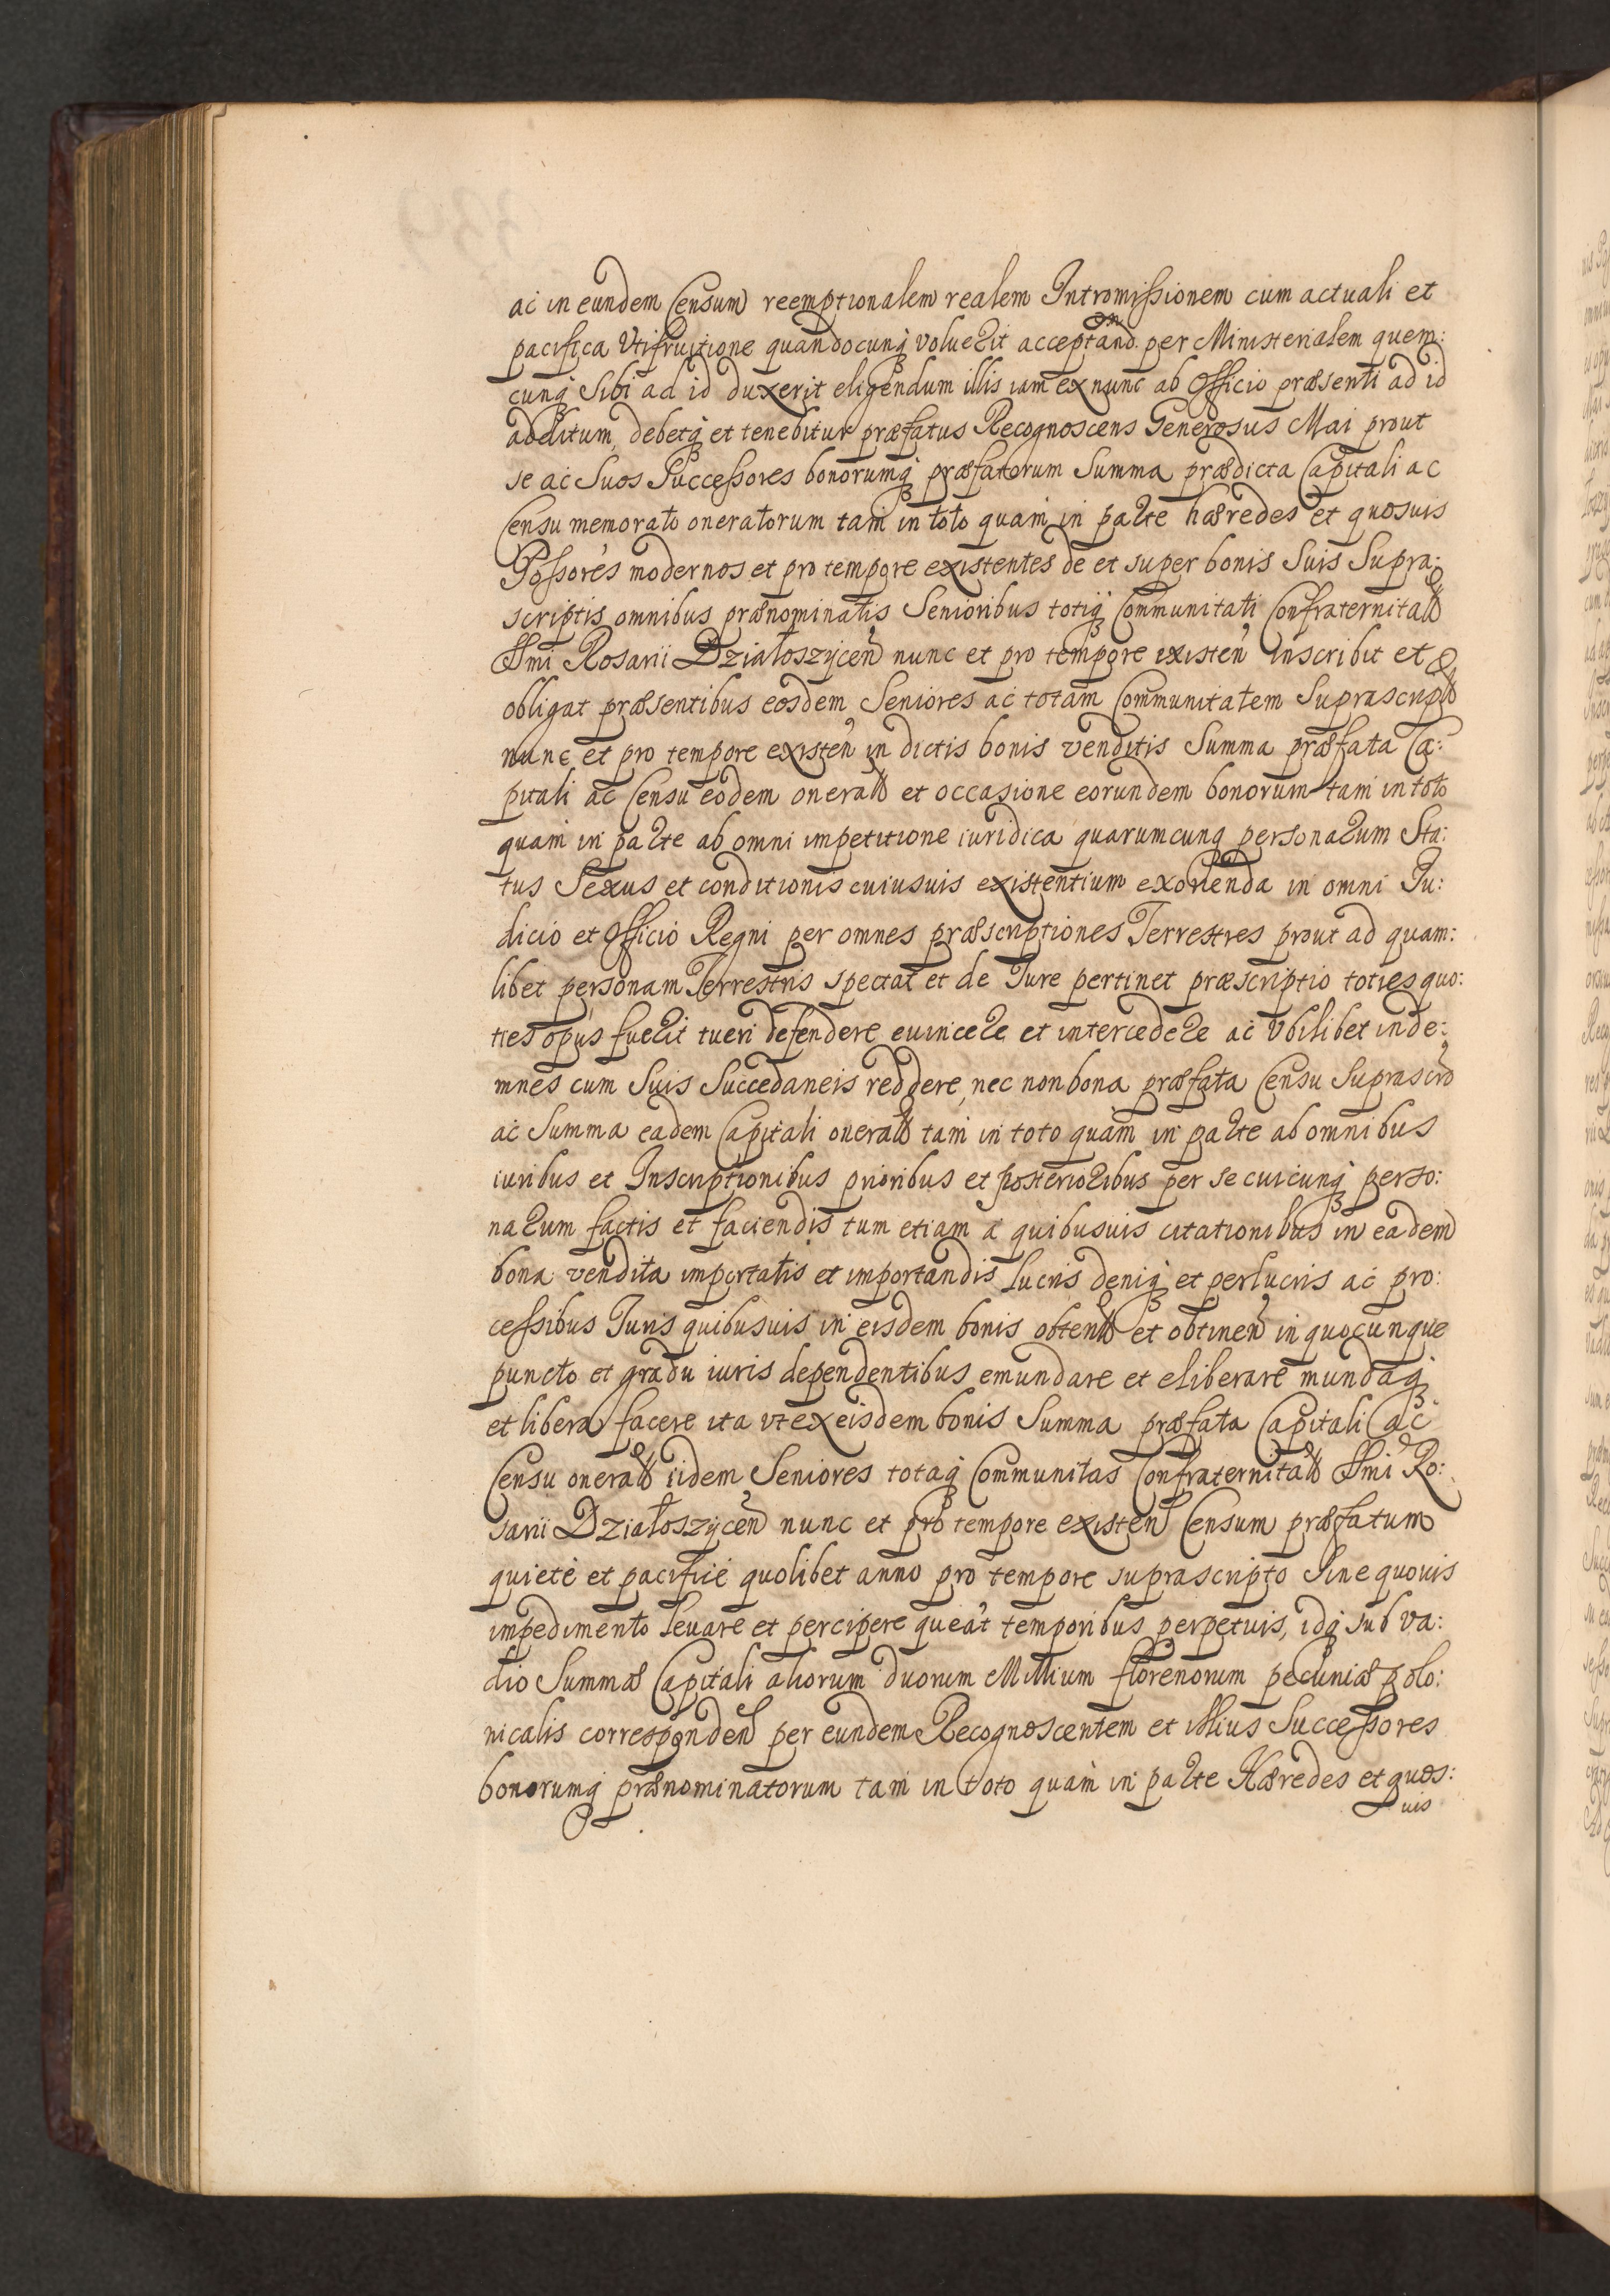 ac in eundem Censum reemptionalem realem Intromissionem cum actuali et
pacifica Vtifruitione quandocunq voluerit acceptand per Ministerialem quem:
cunq Sibi ad id duxerit eligendum illis iam ex nunc ab Officio præsenti ad id
additum, debetq et tenebitur præfatus Recognoscens Generosus Mai prout
se ac Suos Successores bonorumq præfatorum Summa prædicta Capitali ac
Censu memorato oneratorum tam in toto quam in parte hæredes et quosuis
Possores modernos et pro tempore existentes de et super bonis Suis Supra:
scriptis omnibus prænominatis Senioribus totiq Communitati Confraternitatis
SSmi Rosarii Działoszÿcen nunc et pro tempore existen inscribit et
obligat præsentibus eosdem Seniores ac totam Communitatem Suprascript
nunc et pro tempore existen in dictis bonis venditis Summa præfata Ca:
pitali ac Censu eodem onerat et occasione eorundem bonorum tam in toto
quam in parte ab omni impetitione iuridica quarumcunq personarum Sta:
tus Sexus et conditionis cuiusuis existentium exorienda in omni Iu:
dicio et Officio Regni per omnes præscriptiones Terrestres prout ad quam:
libet personam Terrestris spectat et de Iure pertinet præscriptio toties quo:
ties opus fuerit tueri defendere euincere et intercedere ac Vbilibet inde:
mnes cum Suis Succedaneis reddere, nec non bona præfata Censu Suprascro
ac Summa eadem Capitali onerat tam in toto quam in parte ab omnibus
iuribus et Inscriptionibus prioribus et posterioribus per se cuicunq perso:
narum factis et faciendis tum etiam a quibusuis citationibus in eadem
bona vendita importatis et importandis lucris deniq et perlucris ac pro:
cessibus Iuris quibusuis in eisdem bonis obtent et obtinen in quocunque
puncto et gradu iuris dependentibus emundare et eliberare mundaq
et libera facere ita vt ex eisdem bonis Summa præfata Capitali ac
Censu onerat iidem Seniores totaq Communitas Confraternitatis SSmi Ro:
sarii Działoszÿcen nunc et pro tempore existen Censum præfatum
quiete et pacifice quolibet anno pro tempore suprascripto Sine quouis
impedimento leuare et percipere queat temporibus perpetuis, idq sub va:
dio Summæ Capitali aliorum duorum Millium florenorum pecuniæ polo:
nicalis corresponden per eundem Recognoscentem et illius Successores
bonorumq prænominatorum tam in toto quam in parte Hæredes et quos:
uis